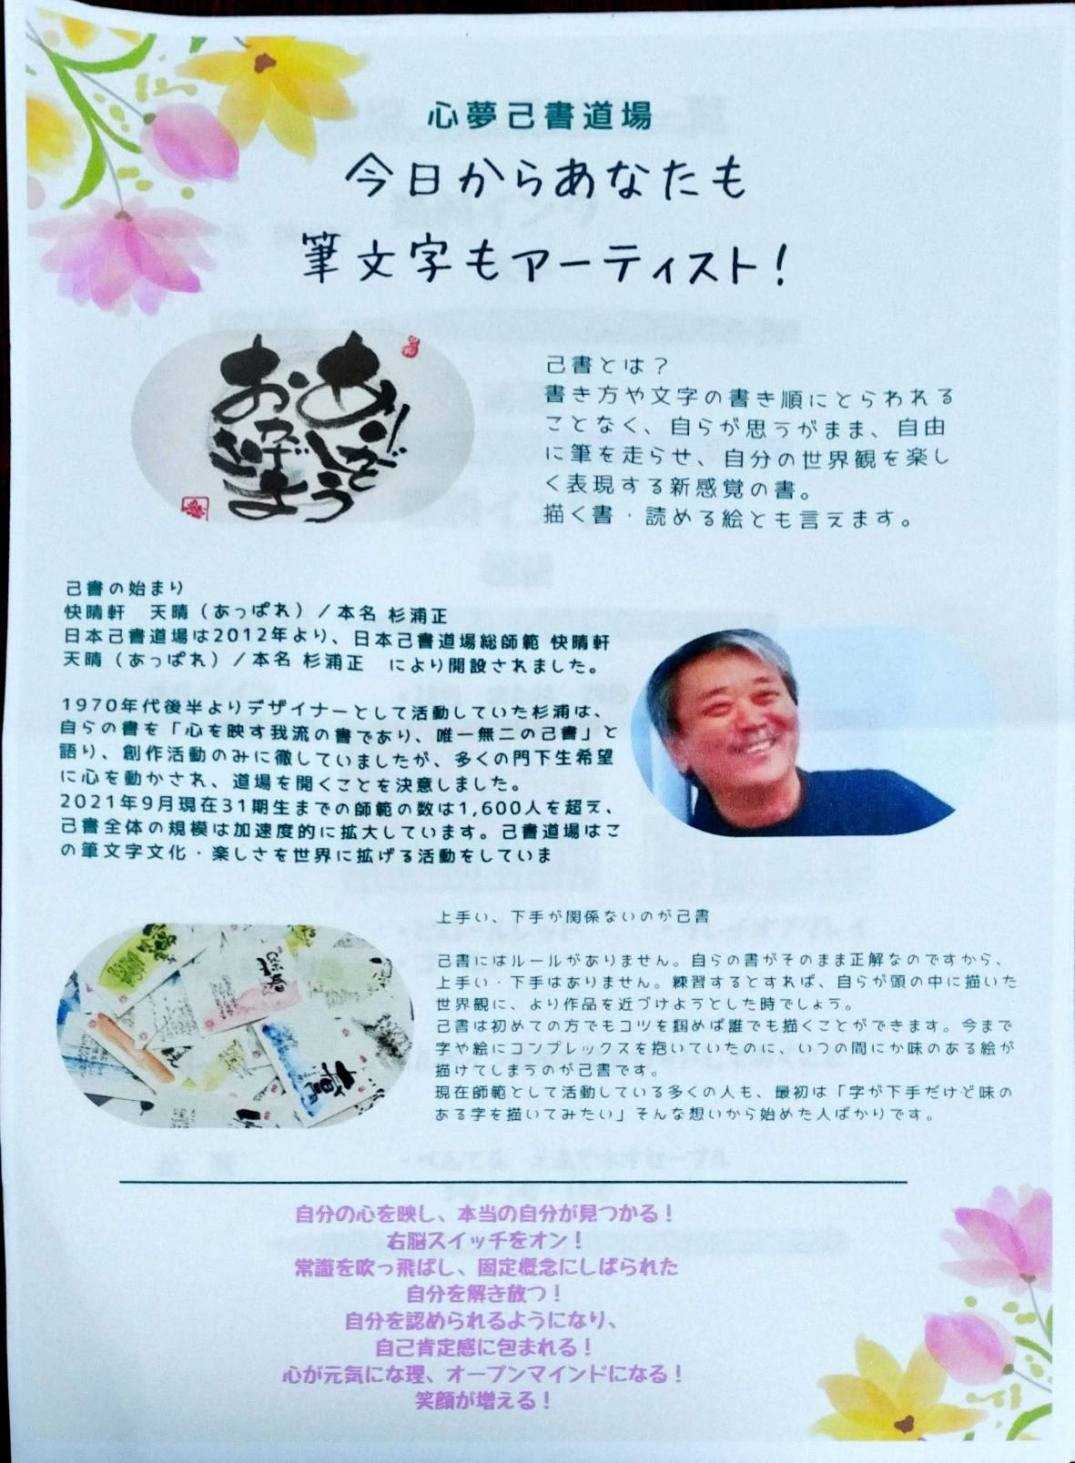 心夢己書道場
今日からあなたも
筆文字もアーティスト！
ありがとう
おかげさま
己書とは？
書き方や文字の書き順にとらわれる
ことなく、自らが思うがまま、自由
に筆を走らせ、自分の世界観を楽し
く表現する新感覚の書。
描く書・読める絵とも言えます。
己書の始まり
快晴軒　天晴（あっぱれ）／本名 杉浦正
日本己書道場は2012年より、日本己書道場総師範 快晴軒
天晴（あっぱれ）／本名 杉浦正　により開設されました。
1970年代後半よりデザイナーとして活動していた杉浦は、
自らの書を「心を映す我流の書であり、唯一無二の己書」と
語り、創作活動のみに徹していましたが、多くの門下生希望
に心を動かされ、道場を開くことを決意しました。
2021年9月現在31期生までの師範の数は1,600人を超え、
己書全体の規模は加速度的に拡大しています。己書道場はこ
の筆文字文化・楽しさを世界に拡げる活動をしていま
上手い、下手が関係ないのが己書
己書にはルールがありません。自らの書がそのまま正解なのですから、
上手い・下手はありません。練習するとすれば、自らが頭の中に描いた
世界観に、より作品を近づけようとした時でしょう。
己書は初めての方でもコツを掴めば誰でも描くことができます。今まで
字や絵にコンプレックスを抱いていたのに、いつの間にか味のある絵が
描けてしまうのが己書です。
現在師範として活動している多くの人も、最初は「字が下手だけど味の
ある字を描いてみたい」そんな想いから始めた人ばかりです。
自分の心を映し、本当の自分が見つかる！
右脳スイッチをオン！
常識を吹っ飛ばし、固定概念にしばられた
自分を解き放つ！
自分を認められるようになり、
自己肯定感に包まれる！
心が元気にな理、オープンマインドになる！
笑顔が増える！